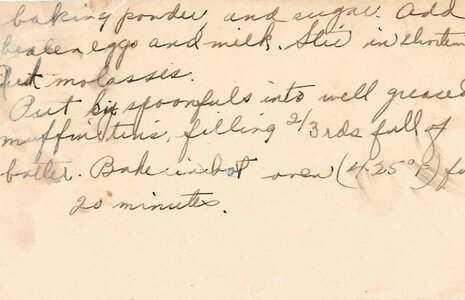 baking powder and sugar. Add
beaten eggs and milk. Stir in shorten
molasses.
Put by spoonfuls into well greased
muffinstins, filling 2/3rds full of
batter. Bake in hot oven (425°F) fo
20 minutes.